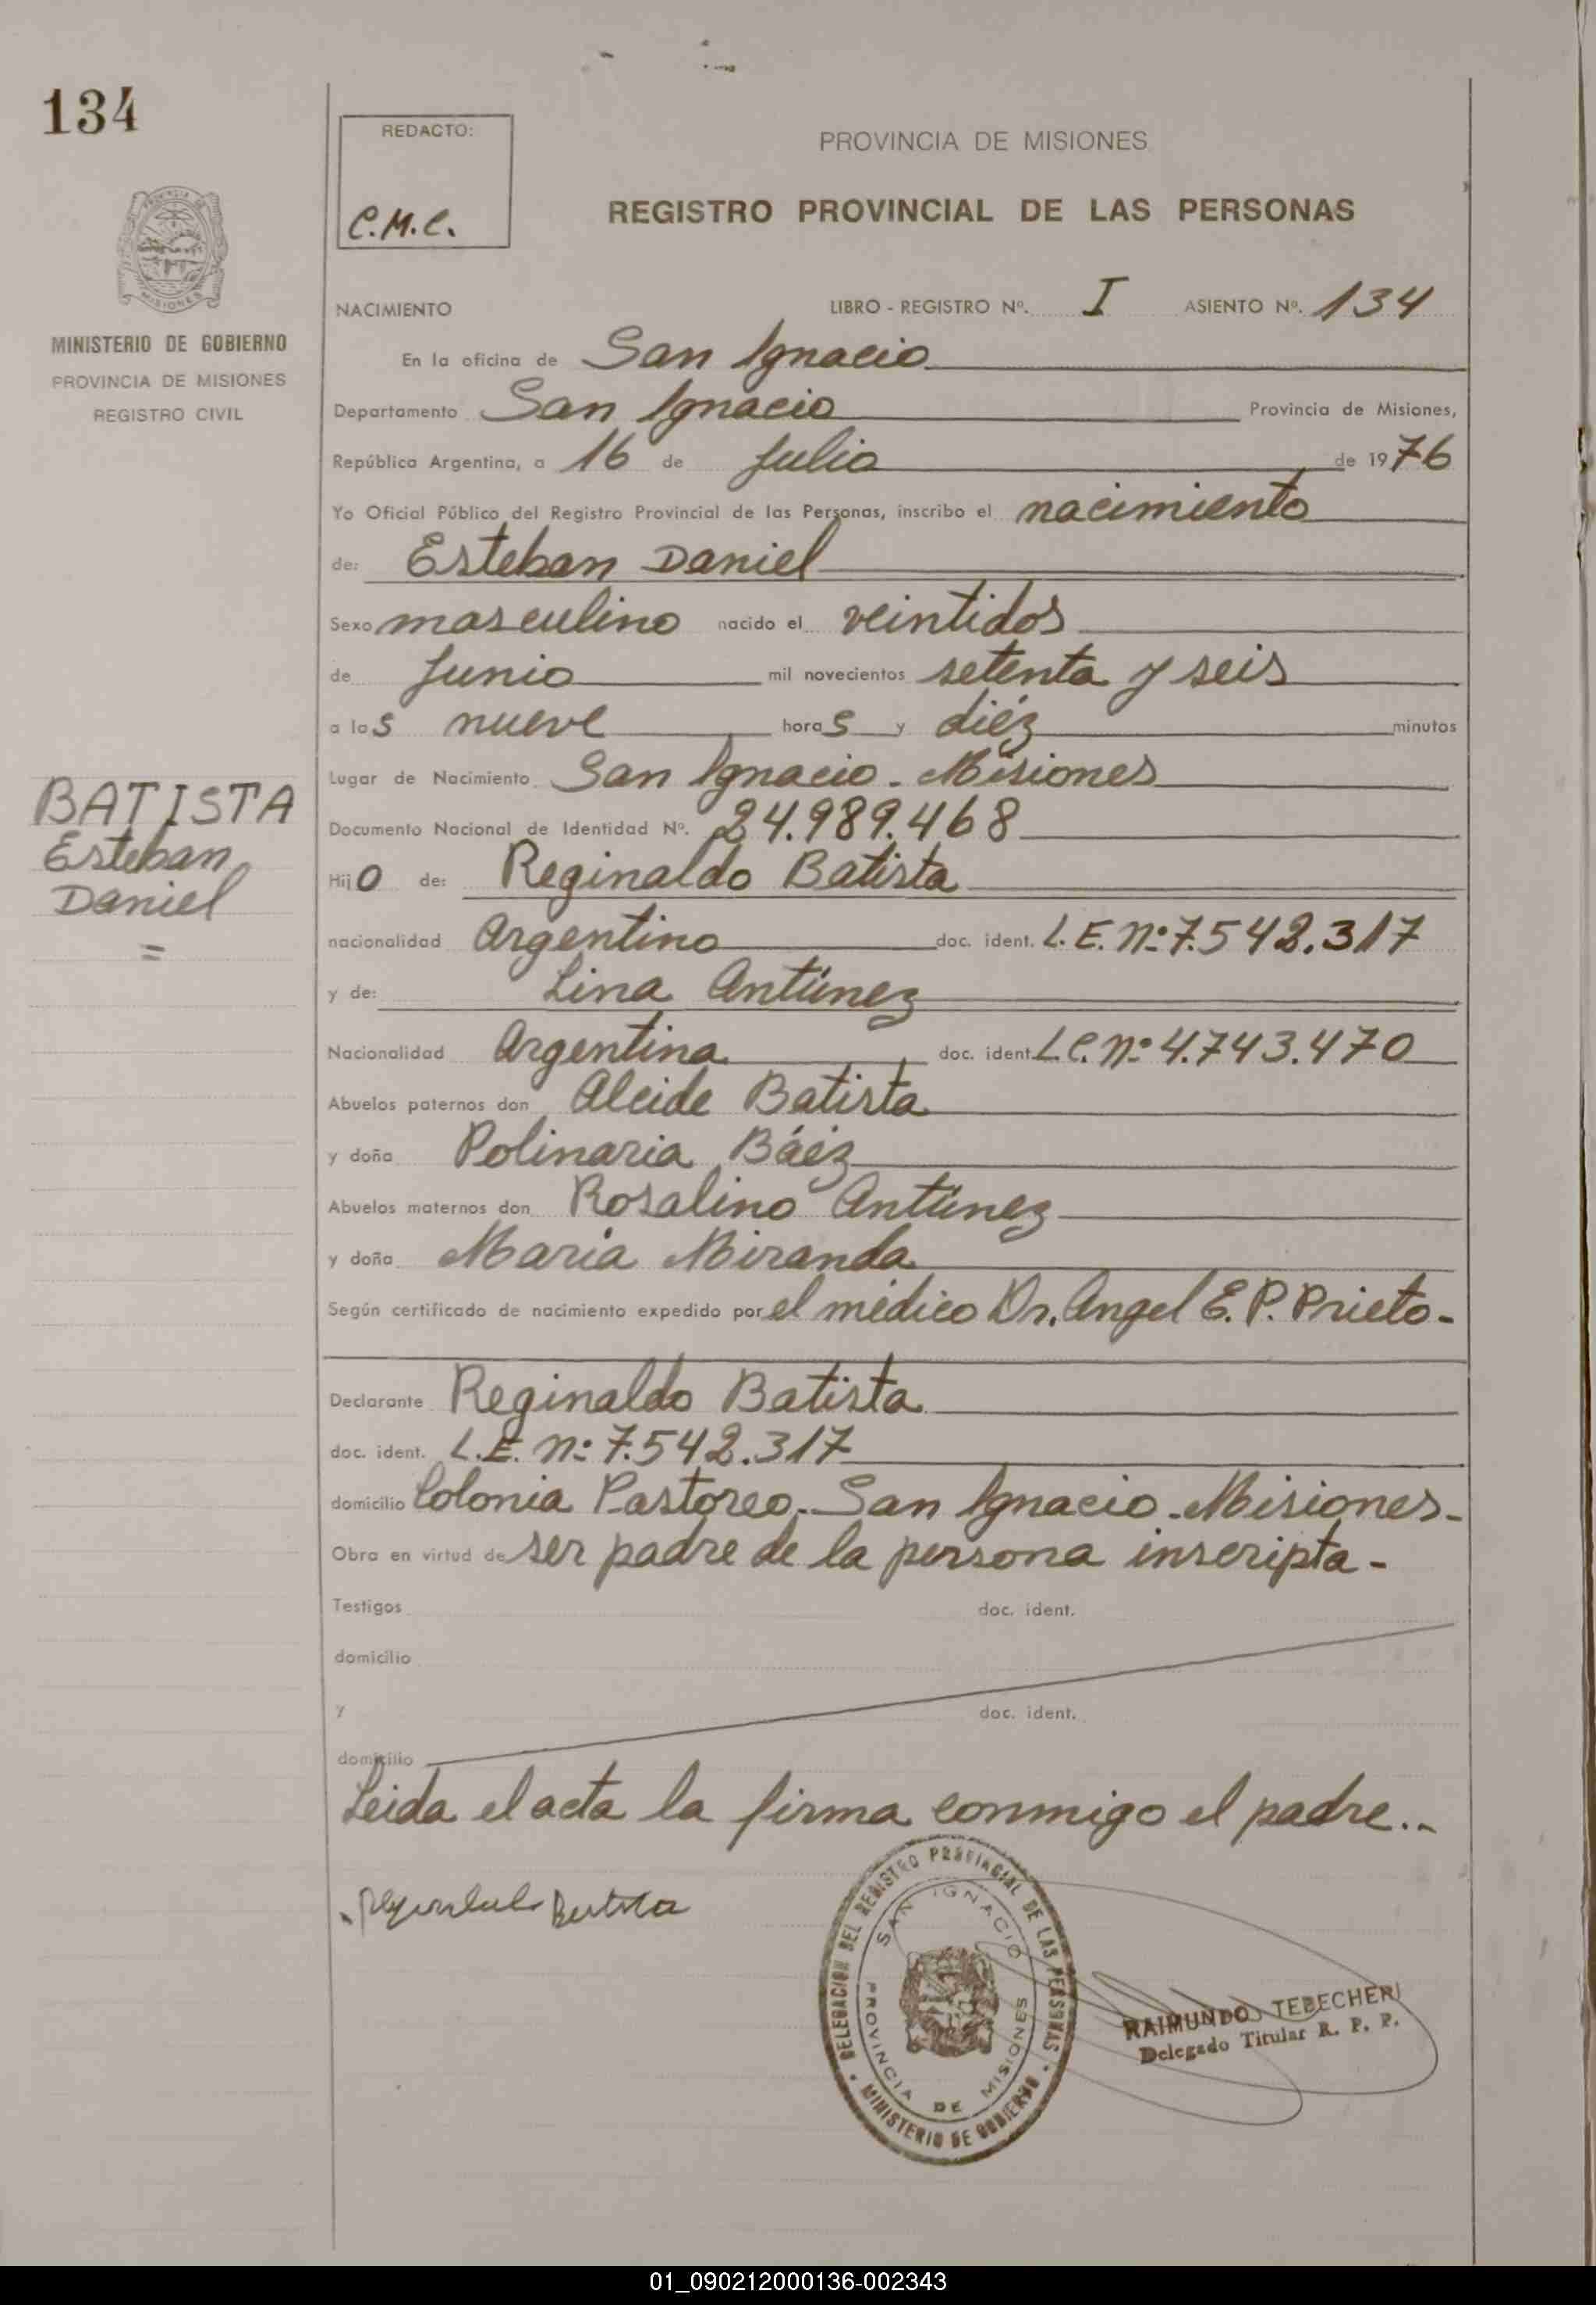 134
REDACTO:
C.M.C.
PROVINCIA DE MISIONES
REGISTRO PROVINCIAL DE LAS PERSONAS
MISIONES
MINISTERIO DE GOBIERNO
PROVINCIA DE MISIONES
REGISTRO CIVIL
NACIMIENTO LIBRO - REGISTRO Nº. I ASIENTO Nº. 134
En la oficina de San Ignacio
Departamento San Ignacio Provincia de Misiones,
República Argentina, a 16 de Julio de 1976
Yo Oficial Público del Registro Provincial de las Personas, inscribo el nacimiento
de: Esteban Daniel
Sexo masculino nacido el veintidos
de Junio mil novecientos setenta y seis
a las nueve horas y diéz minutos
Lugar de Nacimiento San Ignacio - Misiones
BATISTA
Esteban
Daniel
=
Documento Nacional de Identidad Nº. 24.989.468
Hijo de: Reginaldo Batista
nacionalidad Argentino doc. ident. L.E. nº 7.542.317
y de: Lina Antúnez
Nacionalidad Argentina doc. ident. L.C. nº 4.743.470
Abuelos paternos don Alcide Batista
y doña Polinaria Báez
Abuelos maternos don Rosalino Antúnez
y doña María Miranda
Según certificado de nacimiento expedido por el médico Dr. Angel E. P. Prieto-
Declarante Reginaldo Batista
doc. ident. L.E. nº 7.542.317
domicilio Colonia Pastoreo - San Ignacio - Misiones-
Obra en virtud de ser padre de la persona inscripta-
Testigos doc. ident.
domicilio
y doc. ident.
domicilio
Leida el acta la firma conmigo el padre..-
Reginaldo Batista
DELEGACION DEL REGISTRO PROVINCIAL DE LAS PERSONAS
SAN IGNACIO
PROVINCIA DE MISIONES
MINISTERIO DE GOBIERNO
RAIMUNDO TEBECHERI
Delegado Titular R. P. P.
01_090212000136-002343